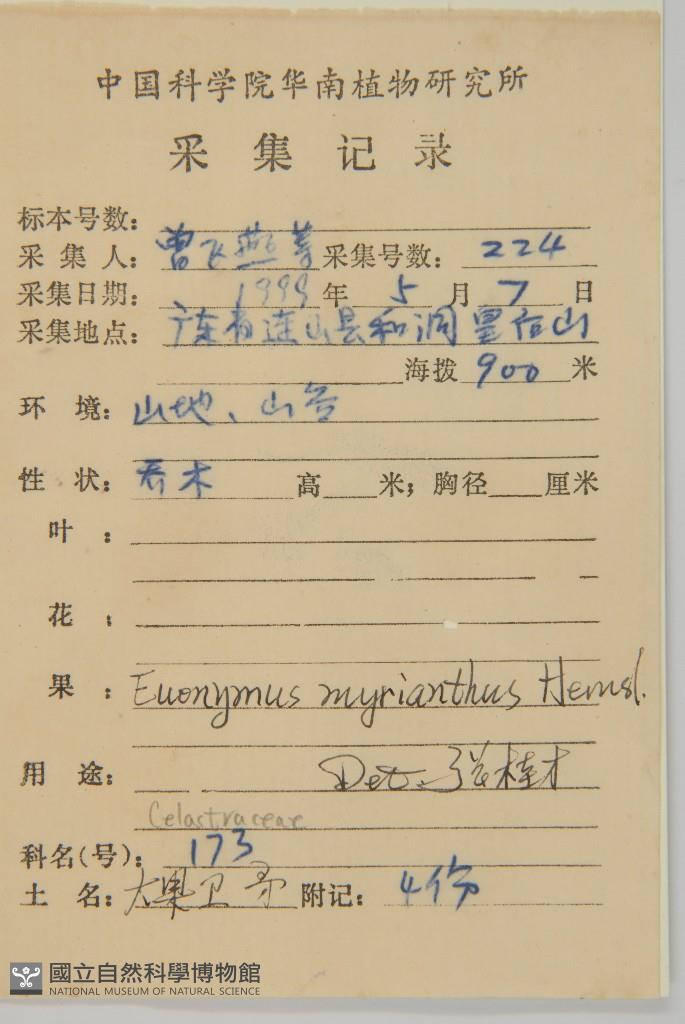 中国科学院华南植物研究所
采集记录
标本号数:
采集人: 曾飞燕等 采集号数: 224
采集日期: 1999 年 5 月 7 日
采集地点: 广东省连山县和洞里台山
海拨 900 米
环境: 山地、山谷
性状: 乔木 高 米; 胸径 厘米
叶:
花:
果: Euonymus myrianthus Hemsl.
用途: Det. 张桂才
Celastraceae
科名(号): 173
土名: 大果卫矛 附记: 4份
國立自然科學博物館
NATIONAL MUSEUM OF NATURAL SCIENCE